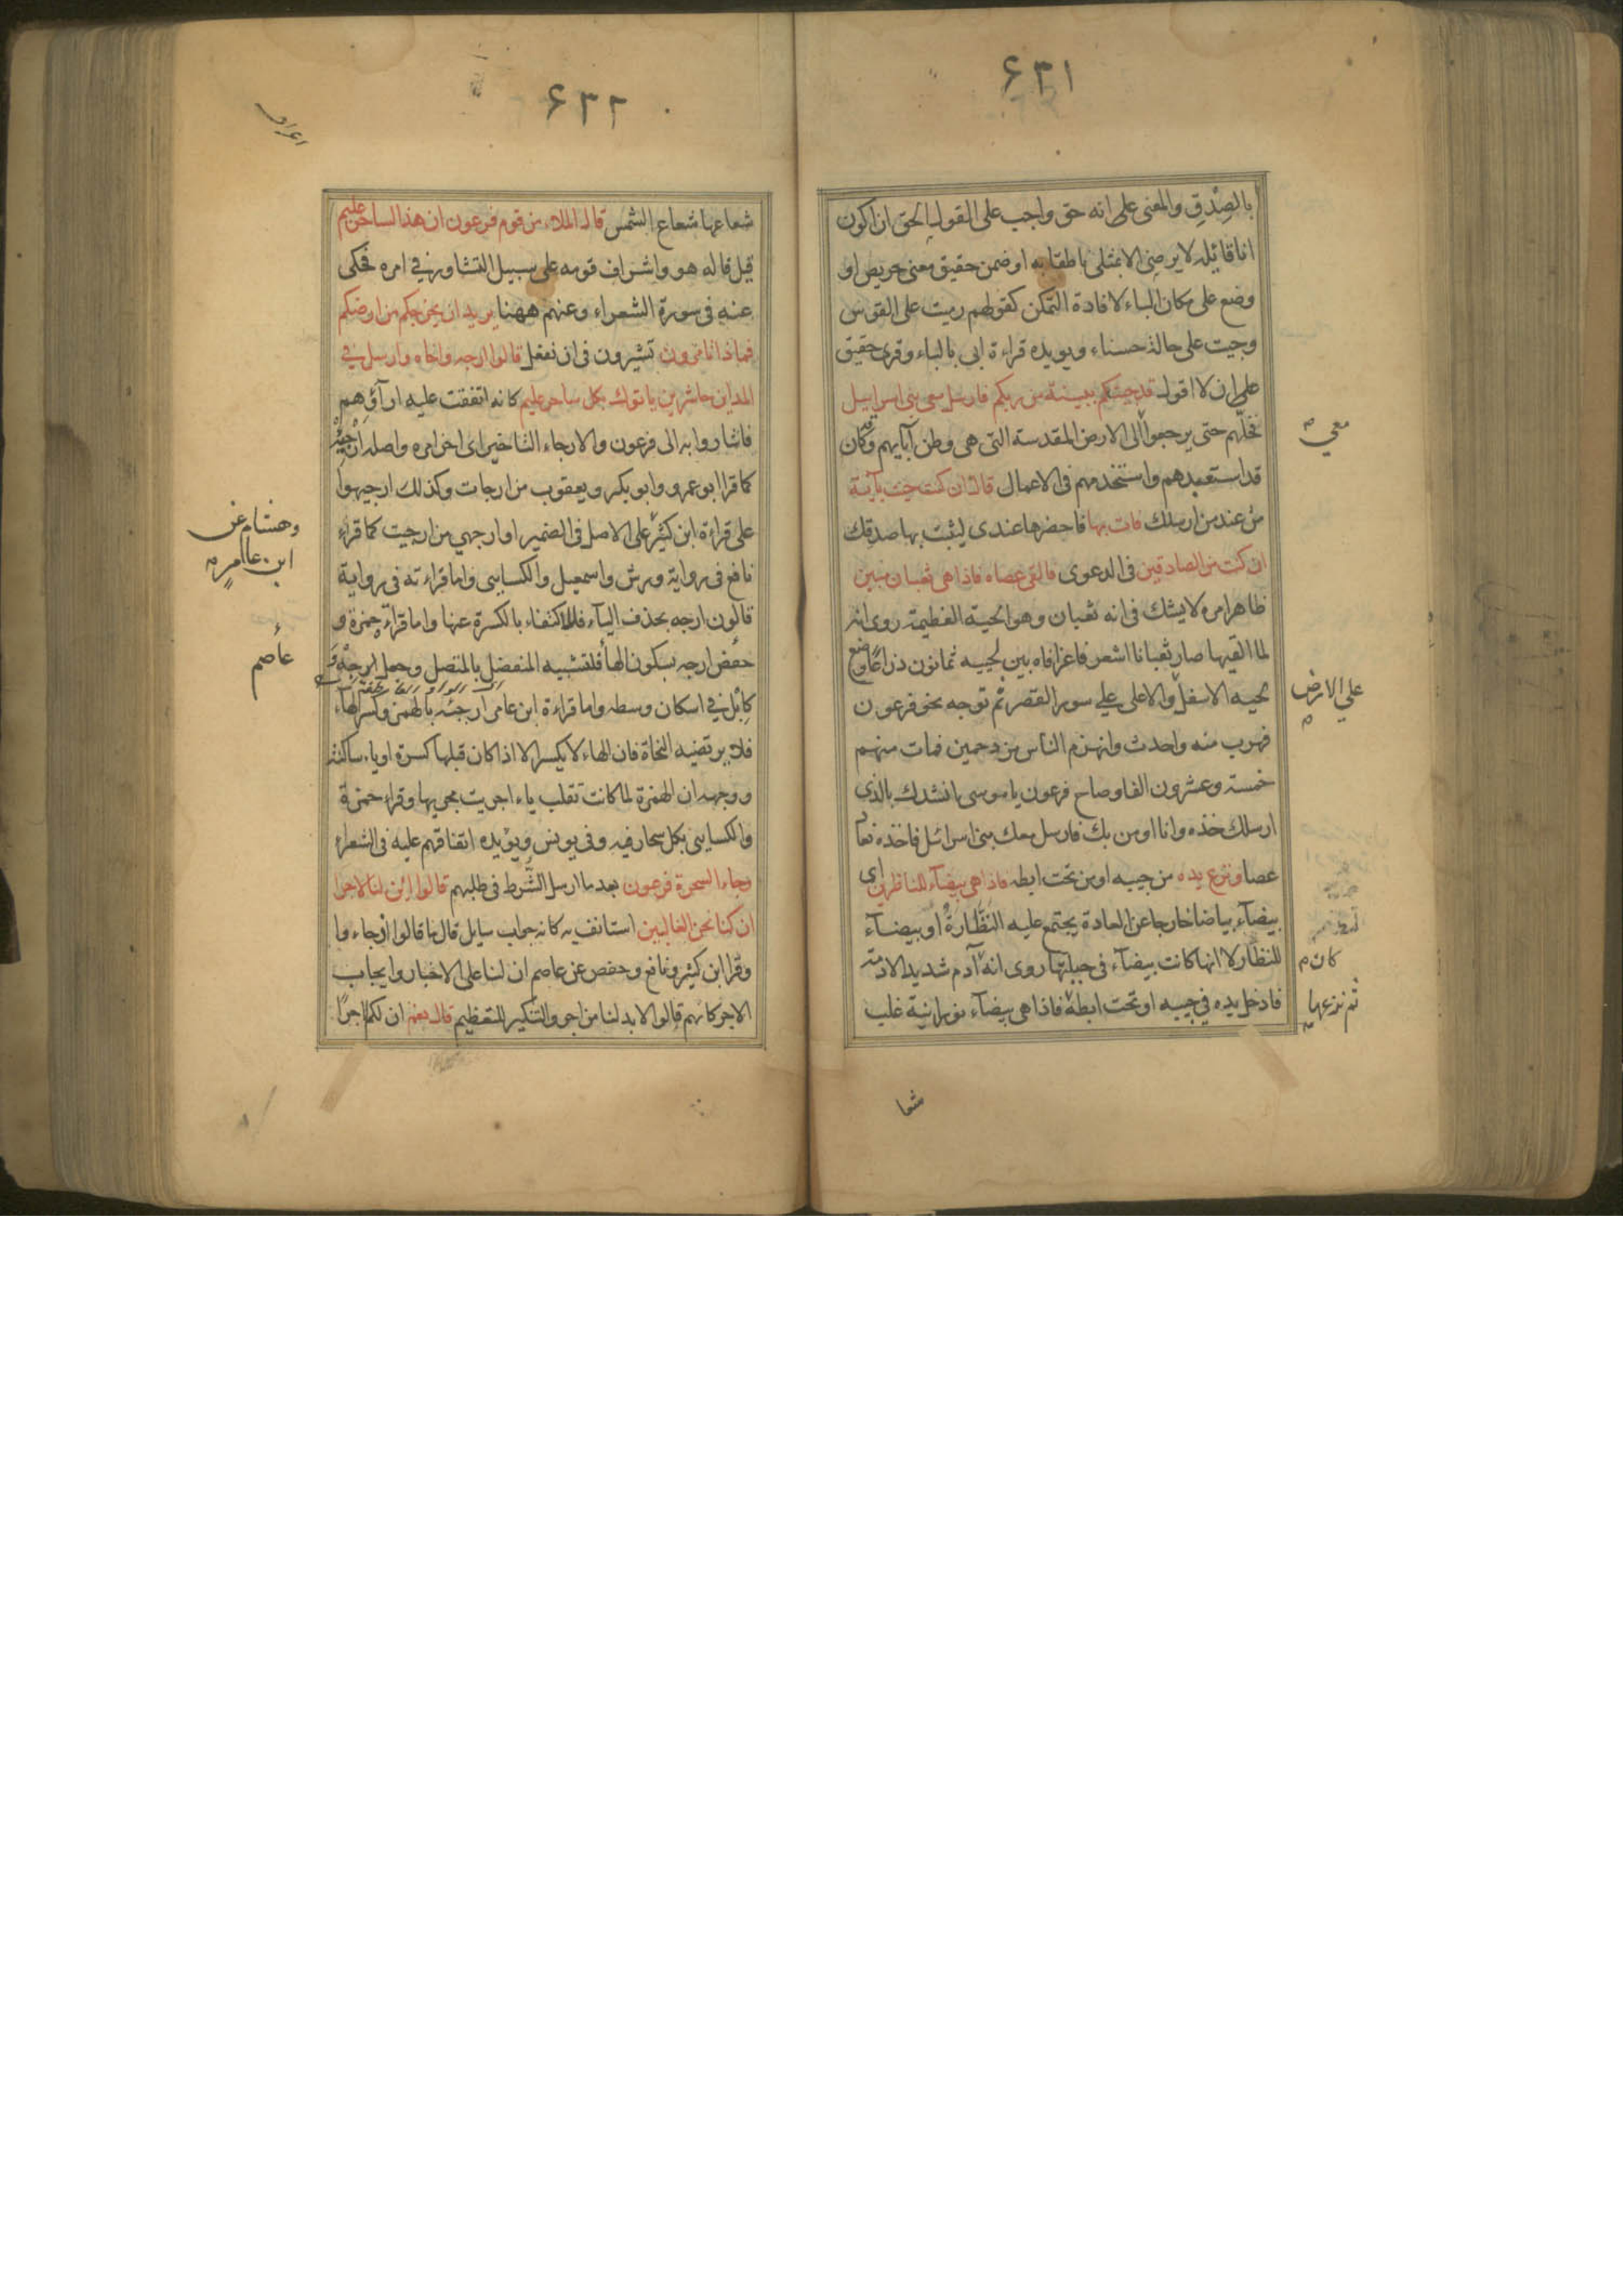 ۶۳۱
بالصِدْقِ والمعنى على انه حق واجب على القول الحق ان اكون
انا قائله لا يرضى الا بمثلى ناطقا به او ضمن حقيق معنى حريص او
وضع على مكان الباء لافادة التمكن كقولهم رميت على القوس
وجيت على حالة حسناء ويويده قراءة ابى بالباء وقرى حقيق
على ان لا اقول قد جيتكم ببينة من ربكم فارسل معى بنى اسراييل
فخلّهم حتى يرجعوا الى الارض المقدسة التى هى وطن آبايهم وكان
معي
قد استعبدهم واستخدمهم فى الاعمال قال ان كنت جيت بآية
من عند من ارسلك فات بها فاحضرها عندى ليثبت بها صدقك
ان كنت من الصادقين فى الدعوى فالقى عصاه فاذا هى ثعبان مبين
ظاهر امره لا يشك فى انه ثعبان وهو الحية العظيمة روى انه
لما القيها صار ثعبانا اشعر فاغرا فاه بين لحييه ثمانون ذراعًا وضع
لحيه الاسفل والاعلى على سور القصر ثم توجه نحو فرعون
على الارض
فهرب منه واحدث وانهزم الناس مزدحمين فمات منهم
خمسة وعشرون الفا وصاح فرعون يا موسى انشدك بالذى
ارسلك خذه وانا اومن بك فارسل معك بنى اسرائل فاخذه فعا
عصا ونزع يده من جيبه او من تحت ابطه فاذا هى بيضآء للناظرين اى
بيضآء بياضا خارجا عن العادة يجتمع عليه النَظَّارَةُ او بيضآء
للنظّار لا انها كانت بيضآء فى جبلتها روى انه آدم شديد الادمة
كان م
فادخل يده في جيبه او تحت ابطه فاذا هى بيضآء نورانية غلب
ثم نزعها
شعا
۶۳۲
شعاعها شعاع الشمس قال الملاء من قوم فرعون ان هذا لساحر عليم
قيل قاله هو واشراف قومه على سبيل التشاور في امره فحكى
عنه فى سورة الشعراء وعنهم ههنا يريد ان يخرجكم من ارضكم
فماذا تامرون تشيرون فى ان نفعل قالوا ارجه واخاه وارسل في
المداين حاشرين ياتوك بكل ساحر عليم كانه اتفقت عليه ارآؤهم
فاشاروا به الى فرعون والارجاء التاخير اى اخر امره واصله ارجئه
كما قرا ابو عمرو وابو بكر ويعقوب من ارجات وكذلك ارجيهوا
على قراءة ابن كثير على الاصل فى الضمير او ارجهي من ارجيت كما قراء
وهشام عن
ابن عامر
نافع فى رواية ورش واسمعيل والكسايى واما قراءته فى رواية
قالون ارجه بحذف اليآء فللاكتفاء بالكسرة عنها واما قراءة حمزة و
عاصم
حفص ارجه بسكون الهآ فلتشبيه المنفصل بالمتصل وجعل ارجه و
كابل في اسكان وسطه واما قراءة ابن عامر ارجئه بالهمز وكسر الهآء
فلا يرتضيه النحاة فان الهاء لا يكسر الا اذا كان قبلها كسرة او ياء ساكنة
ووجهه ان الهمزة لما كانت تقلب ياء اجريت مجريها وقراء حمزة
والكسايى بكل سحار فيه وفى يونس ويؤيده اتفاقهم عليه فى الشعراء
وجاء السحرة فرعون بعد ما ارسل الشُرط فى طلبهم قالوا ائن لنا لاجرا
ان كنا نحن الغالبين استانف به كانه جواب سايل قال ما قالوا اذ جاءوا
وقرا ابن كثير ونافع وحفص عن عاصم ان لنا على الاخبار وايجاب
الاجر كانهم قالوا لابد لنا من اجر والتنكير للتعظيم قال نعم ان لكم اجرًا